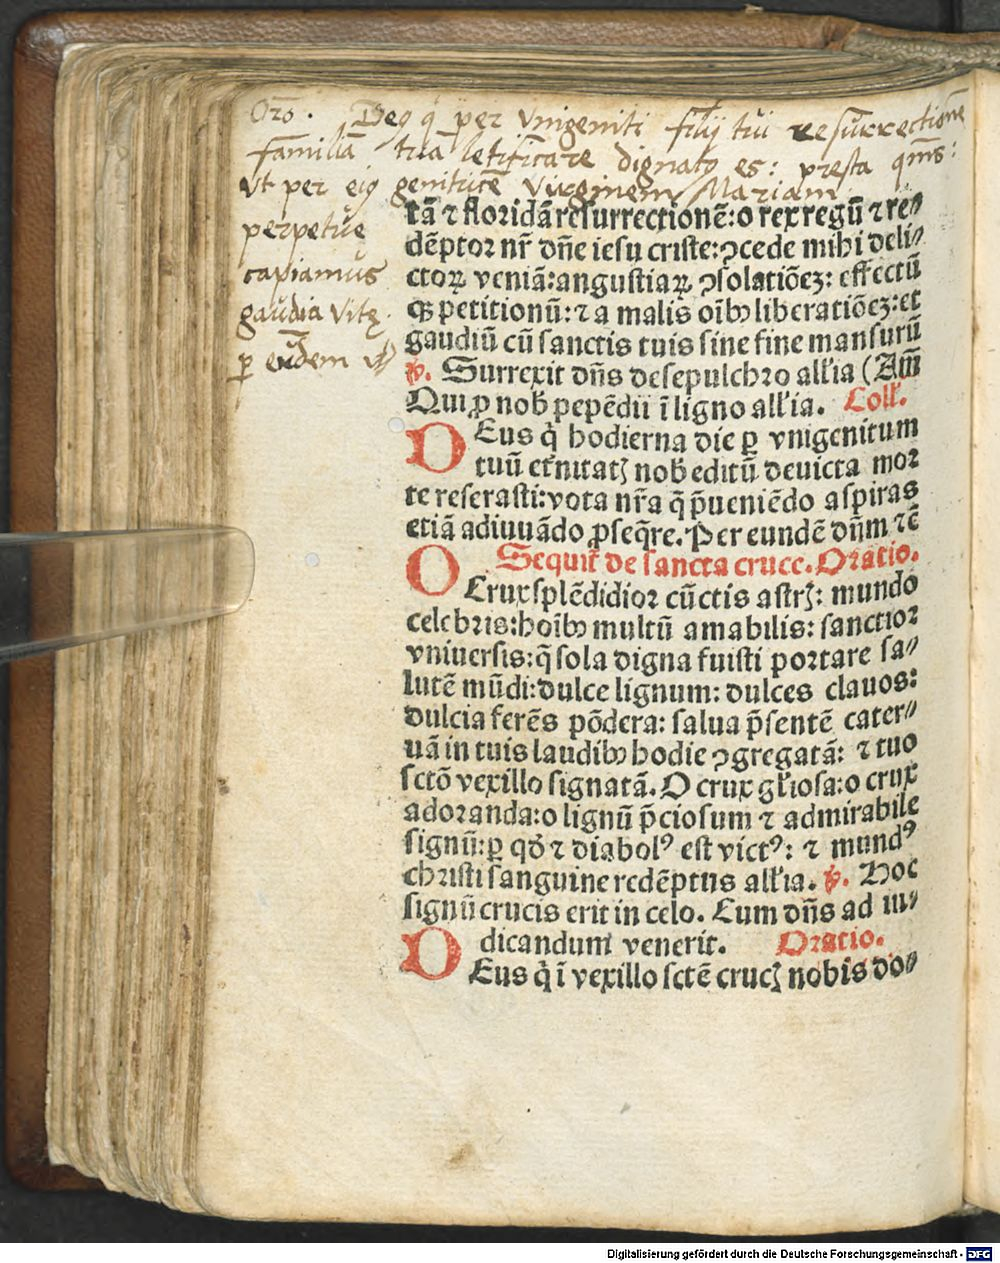 Oro. Deq q̇ per vnigeniti filij tui resurrectionē
familiā tuā letificare dignatꝯ es: presta qms:
vt per eiꝯ genitricē Virginem Mariam
perpetue
capiamus
gaudia vitę.
ꝑ eūdem
tā ⁊ floridā resurrectionē: o rex regū ⁊ re⸗
dēptor nr̄ dn̄e iesu criste: ꝯcede mihi deli⸗
ctoꝝ veniā: angustiaꝝ ꝯsolatiōeꝫ: effectū
qꝫ petitionū: ⁊ a malis oībꝰ liberatiōeꝫ: et
gaudiū cū sanctis tuis sine fine mansurū
℣. Surrexit dn̄s de sepulchro all'ia (Am̄
Qui ꝓ nob̓ pepēdit ī ligno all'ia. Coll'.
DEus q̇ hodierna die ꝑ vnigenitum
tuū et̓nitatꝭ nob̓ editū deuicta mor
te reserasti: vota nr̄a q̄ p̄ueniēdo aspiras
etiā adiuuādo ꝓseq̄re. Per eundē dn̄m ⁊c̄
Sequit̓ de sancta cruce. Oratio.
O Crux splēdidior cūctis astrꝭ: mundo
celebris: hoībꝰ multū amabilis: sanctior
vniuersis: q̄ sola digna fuisti portare sa⸗
lutē mūdi: dulce lignum: dulces clauos:
dulcia ferēs pōdera: salua p̄sentē cater⸗
uā in tuis laudibꝰ hodie ꝯgregatā: ⁊ tuo
sctō vexillo signatā. O crux gl'iosa: o crux
adoranda: o lignū p̄ciosum ⁊ admirabile
signū: ꝑ qd̄ ⁊ diabolꝰ est victꝰ: ⁊ mundꝰ
christi sanguine redēptus all'ia. ℣. Hoc
signū crucis erit in celo. Cum dn̄s ad iu⸗
dicandum venerit. Oratio.
DEus q̇ ī vexillo sctē crucꝭ nobis do⸗
Digitalisierung gefördert durch die Deutsche Forschungsgemeinschaft - DFG